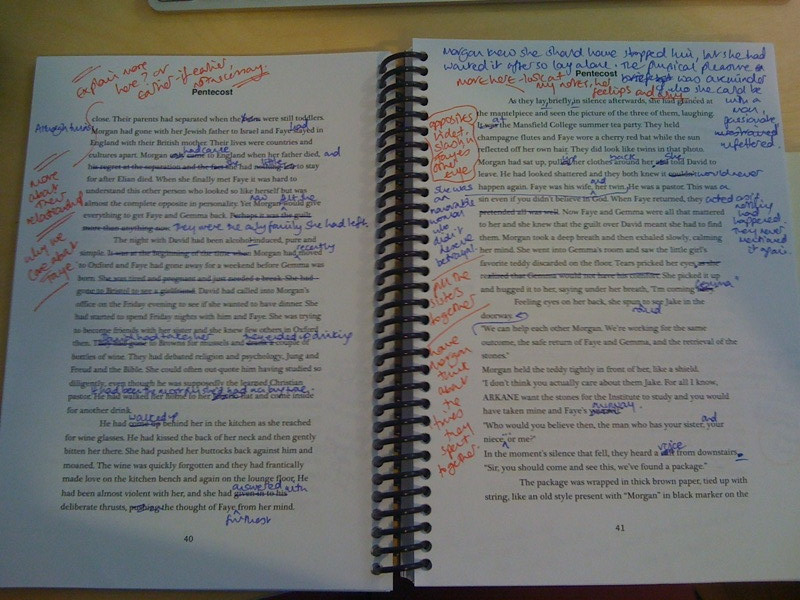 explain more
here? or
earlier if earlier,
Pentecost
Although twins
close. Their parents had separated when the were still toddlers.
Morgan had gone with her Jewish father to Israel and Faye stayed in
England with their British mother. Their lives were countries and
cultures apart. Morgan had come to England when her father died, and
his regret at the separation and the fact had to stay
for after Elian died. When she finally met Faye it was hard to
understand this other person who looked so like herself but was
almost the complete opposite in personality. Yet Morgan would give
everything to get Faye and Gemma back. Perhaps it was the guilt
more than anything now. They were the only family she had left.
more
about
their
relationship
why we
care about
Faye
The night with David had been alcohol induced, pure and
simple. It was at the beginning of the time when Morgan had moved recently
to Oxford and Faye had gone away for a weekend before Gemma was
born. She was tired and pregnant and just needed a break. She had
gone to Bristol to see a girlfriend. David had called into Morgan's
office on the Friday evening to see if she wanted to have dinner. She
had started to spend Friday nights with him and Faye. She was trying
to become friends with her sister and she knew few others in Oxford
then. to Browns for mussels and a couple of
bottles of wine. They had debated religion and psychology, Jung and
Freud and the Bible. She could often out-quote him having studied so
diligently, even though he was supposedly the learned Christian
pastor. He had walked her home to her flat and come inside
for another drink.
He had walked up behind her in the kitchen as she reached
for wine glasses. He had kissed the back of her neck and then gently
bitten her there. She had pushed her buttocks back against him and
moaned. The wine was quickly forgotten and they had frantically
made love on the kitchen bench and again on the lounge floor. He
had been almost violent with her, and she had given in to his answered with
deliberate thrusts, pushing the thought of Faye from her mind.
furthest
40
Morgan knew she should have stopped him, but she had
wanted it after so long alone. The physical pleasure
was a reminder
of who she could be
with a
man,
passionate,
unrestrained
unfettered.
more here - look at
my notes, her
feelings and why
Pentecost
As they lay briefly in silence afterwards, she had glanced at
the mantelpiece and seen the picture of the three of them, laughing.
It was at the Mansfield College summer tea party. They held
champagne flutes and Faye wore a cherry red hat while the sun
reflected off her own hair. They did look like twins in that photo.
Morgan had sat up, pulled her clothes around her David to
leave. He had looked shattered and they both knew it would never
happen again. Faye was his wife, and her twin. He was a pastor. This was a
sin even if you didn't believe in God. When Faye returned, they acted as if
nothing
had
happened.
They never
mentioned
it again.
pretended all was well. Now Faye and Gemma were all that mattered
to her and she knew that the guilt over David meant she had to find
them. Morgan took a deep breath and then exhaled slowly, calming
her mind. She went into Gemma's room and saw the little girl's
favorite teddy discarded on the floor. Tears pricked her eyes as she
realised that Gemma would not have his comfort. She picked it up
and hugged it to her, saying under her breath, "I'm coming Gemma"
opposites
video,
slash in
Faye's
other
eye
she was
an
honorable
woman
who
didn't
deserve
betrayal
all the
sisters
together
have
Morgan
think
about
the
times
they
spent
together.
Feeling eyes on her back, she spun to see Jake in the
doorway.
"We can help each other Morgan. We're working for the same
outcome, the safe return of Faye and Gemma, and the retrieval of the
stones."
Morgan held the teddy tightly in front of her, like a shield.
"I don't think you actually care about them Jake. For all I know,
ARKANE want the stones for the Institute to study and you would
have taken mine and Faye's anyway.
"Who would you believe then, the man who has your sister, and your
niece, or me?"
In the moment's silence that fell, they heard a voice from downstairs.
"Sir, you should come and see this, we've found a package."
The package was wrapped in thick brown paper, tied up with
string, like an old style present with "Morgan" in black marker on the
41